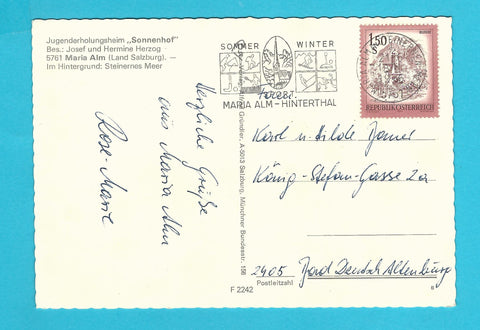 Jugenderholungsheim „Sonnenhof"
Bes.: Josef und Hermine Herzog
5761 Maria Alm (Land Salzburg). —
Im Hintergrund: Steinernes Meer
Herzliche Grüße
aus Maria Alm
Rose-Marie
SOMMER WINTER
MARIA ALM – HINTERTHAL
1.50
REPUBLIK ÖSTERREICH
Gründler, A-5013 Salzburg, Münchner Bundesstr. 158
Karl u. Hilde
König-Stefan-Gasse 2a
2405 Bad Deutsch Altenburg
Postleitzahl
F 2242